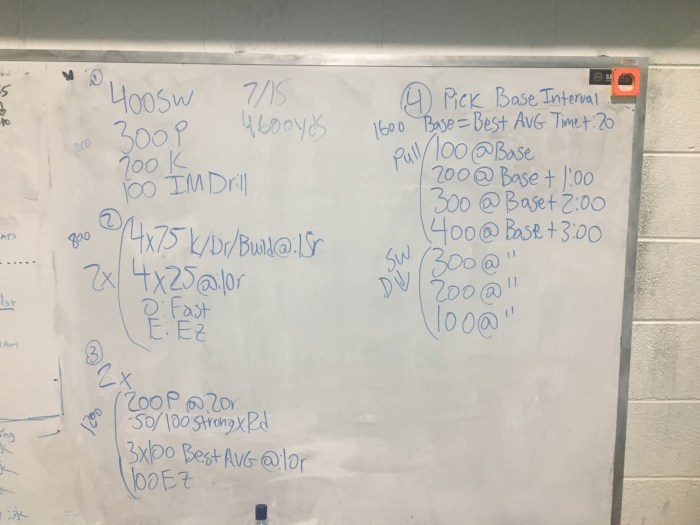 ①
400SW
7/15
4600yds
300P
200 K
100 IM Drill
②
800
4x75 K/Dr/Build@:15r
2x
4x25@:10r
O: Fast
E: EZ
③
2x
1200
200P @:20r
-50/100 strong x Rd
3x100 Best AVG @:10r
100EZ
④ Pick Base Interval
1600 Base=Best AVG Time+:20
Pull
100@Base
200@ Base + 1:00
300 @ Base+2:00
400@ Base+3:00
SW
300@ "
200@ "
100@ "